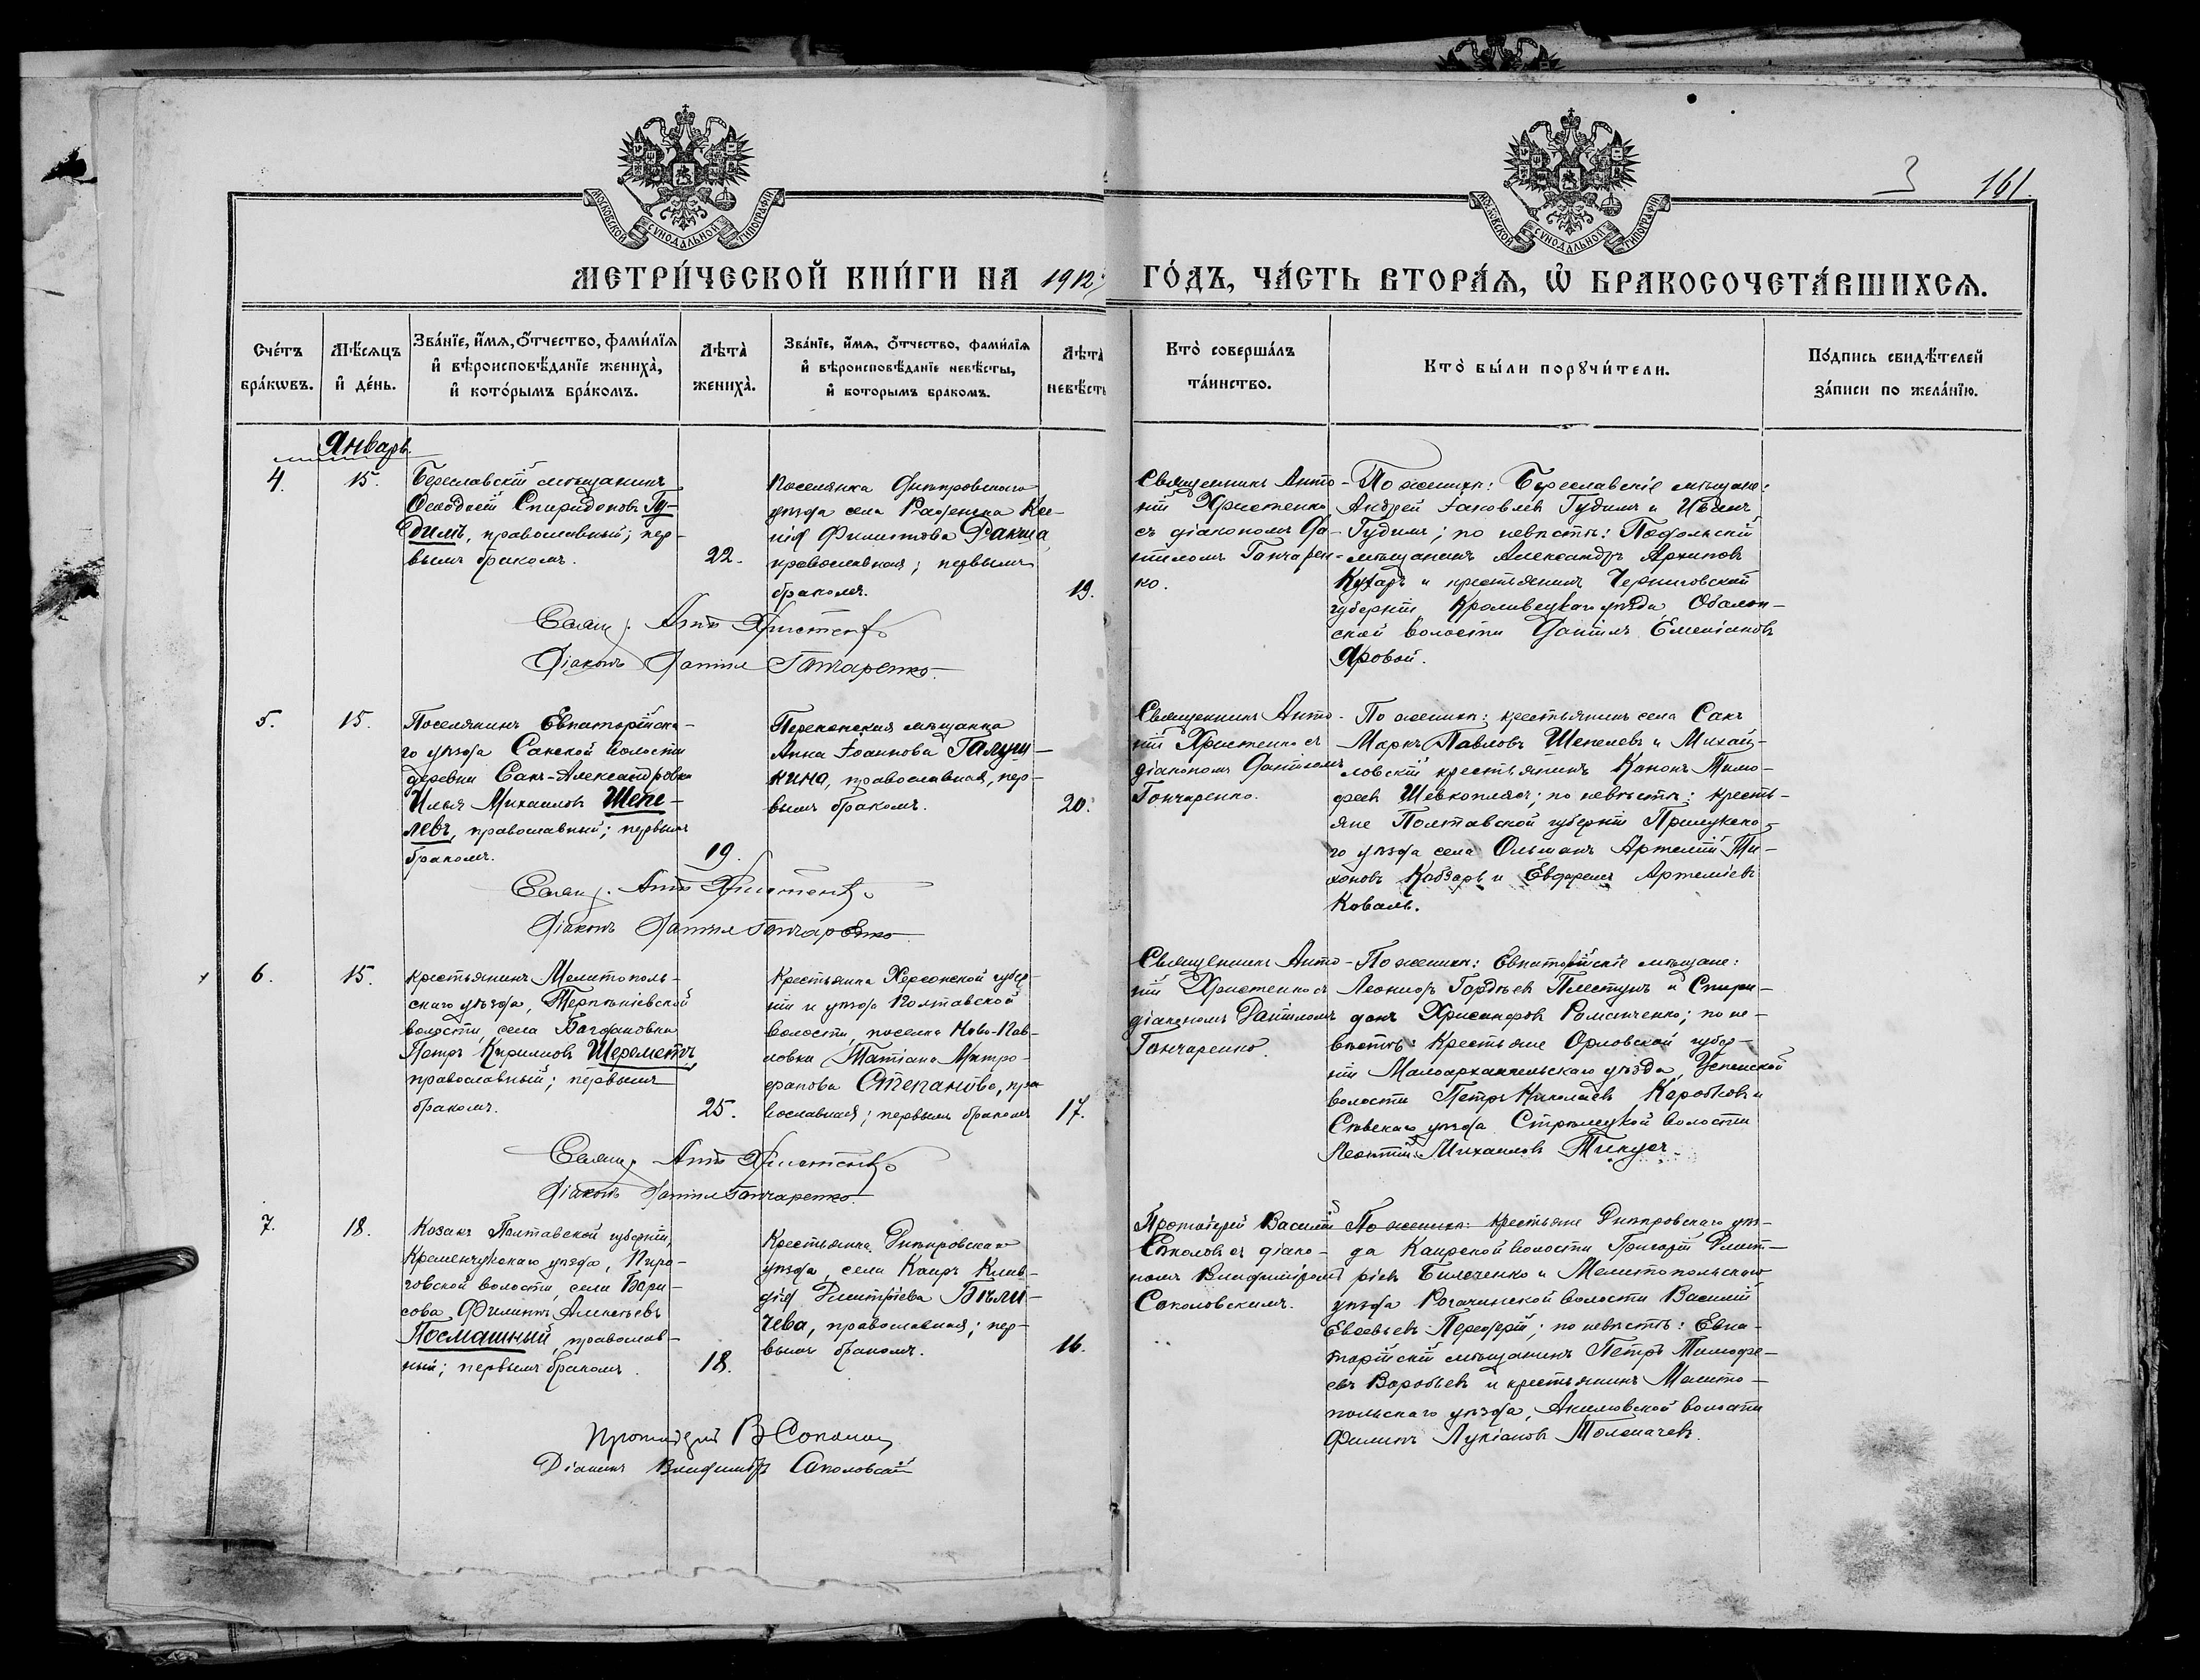 3 161.
МОСКОВСКОЙ СУНОДАЛЬНОЙ ТИПОГРАФІИ
МОСКОВСКОЙ СУНОДАЛЬНОЙ ТИПОГРАФІИ
МЕТРИ́ЧЕСКОЙ КНИ́ГИ НА 1912 ГО́ДЪ, ЧА́СТЬ ВТОРА́Ѧ, Ѡ҆ БРАКОСОЧЕТА́ВШИХСѦ.
Сче́тъ
бра́кѡвъ.
Мѣ́сяцъ
и҆ де́нь.
Зва́нїе, и҆́мѧ, ѻ҆́тчество, фами́лїѧ
и҆ вѣроисповѣ́данїе жениха̀,
и҆ кото́рымъ бра́комъ.
Лѣта̀
жениха̀.
Зва́нїе, и҆́мѧ, ѻ҆́тчество, фами́лїѧ
и҆ вѣроисповѣ́данїе невѣ́сты,
и҆ которымъ бракомъ.
Лѣта̀
невѣ́сты
Кто̀ соверша́лъ
та́инство.
Кто̀ бы́ли порꙋчи́тели.
По́дпись свидѣ́телей
за́писи по жела́нїю.
Январь.
4.
15.
Береславскій мѣщанинъ
Ѳеодосій Спиридоновъ Гу-
димъ, православный; пер-
вымъ бракомъ.
22.
Поселянка Днѣпровскаго
уѣзда села
православная; первымъ
бракомъ.
19.
Священникъ Анто-
ній Христенко
съ діакономъ Да-
ніиломъ Гончарен-
ко.
По женихѣ: Береславскіе мѣщане:
Андрей Іаковлевъ Гудимъ и Иванъ
Гудимъ; по невѣстѣ: Подольскій
мѣщанинъ Александръ Архиповъ
Кухарь и крестьянинъ Черниговской
губерніи Кролевецкаго уѣзда Оболон-
ской волости Даніилъ Емеліановъ
Яровой.
Свящ. Антоній Христенко
Діаконъ Даніилъ Гончаренко.
5.
15.
Поселянинъ Евпаторійска-
го уѣзда Сакской волости
деревни Саки-Александровки
Илья Михаиловъ Шепе-
левъ, православный; первымъ
бракомъ.
19.
Перекопская мѣщанка
Анна Іоаннова Галуш-
кина, православная, пер-
вымъ бракомъ.
20.
Священникъ Анто-
ній Христенко съ
діакономъ Даніиломъ
Гончаренко.
По женихѣ: крестьянинъ села Сакъ
Маркъ Павловъ Шепелевъ и Михай-
ловскій крестьянинъ Кононъ Тимо-
феевъ Шевкоплясъ; по невѣстѣ: кресть-
яне Полтавской губерніи Прилукска-
го уѣзда села Ольшанъ Артемій Ти-
хоновъ Кобзарь и Евфремъ Артеміевъ
Коваль.
Свящ. Антоній Христенко
Діаконъ Даніилъ Гончаренко
6.
15.
Крестьянинъ Мелитополь-
скаго уѣзда, Терпѣніевской
волости, села Богдановки
Петръ Кирилловъ Шереметъ,
православный; первымъ
бракомъ.
25.
Крестьянка Херсонской губер-
ніи и уѣзда Полтавской
волости, поселка Ново-Пав-
ловки Татіана Митро-
фанова Степанова, пра
вославная; первымъ бракомъ
17.
Священникъ Анто-
ній Христенко съ
діакономъ Даніиломъ
Гончаренко.
По женихѣ: Евпаторійскіе мѣщане:
Гордѣевъ Плестунъ и Спири-
донъ Хрисанфовъ Романченко; по не-
вѣстѣ: Крестьяне Орловской губер-
ніи Малоархангельскаго уѣзда, Успенской
волости Петръ Николаевъ Коробковъ и
Сѣвскаго уѣзда Стрѣлецкой волости
Леонтій Михаиловъ
Свящ. Антоній Христенко
Діаконъ Даніилъ Гончаренко.
7.
18.
Козакъ Полтавской губерніи,
Кременчугскаго уѣзда, Пиро-
говской волости, села Бори-
сова Филиппъ Алексѣевъ
Посмашный, православ-
ный; первымъ бракомъ.
18.
Крестьянка Днѣпровскаго
уѣзда, села Каиръ Клав-
дія Дмитріева Бѣли-
чева, православная; пер-
вымъ бракомъ.
16.
Протоіерей Василій
Соколовъ съ діако-
номъ Владиміромъ
Соколовскимъ.
По женихѣ: Крестьяне Днѣпровскаго уѣз-
да Каирской волости Григорій Дмит-
ріевъ Билеченко и Мелитопольскаго
уѣзда Рогачинской волости Василій
Евсевьевъ; по невѣстѣ: Евпа-
торійскій мѣщанинъ Петръ Тимофе-
евъ Воробьевъ и крестьянинъ Мелито-
польскаго уѣзда, Акимовской волости
Филиппъ Лукіановъ Толмачевъ.
Протоіерей В Соколовъ
Діаконъ Владиміръ Соколовскій